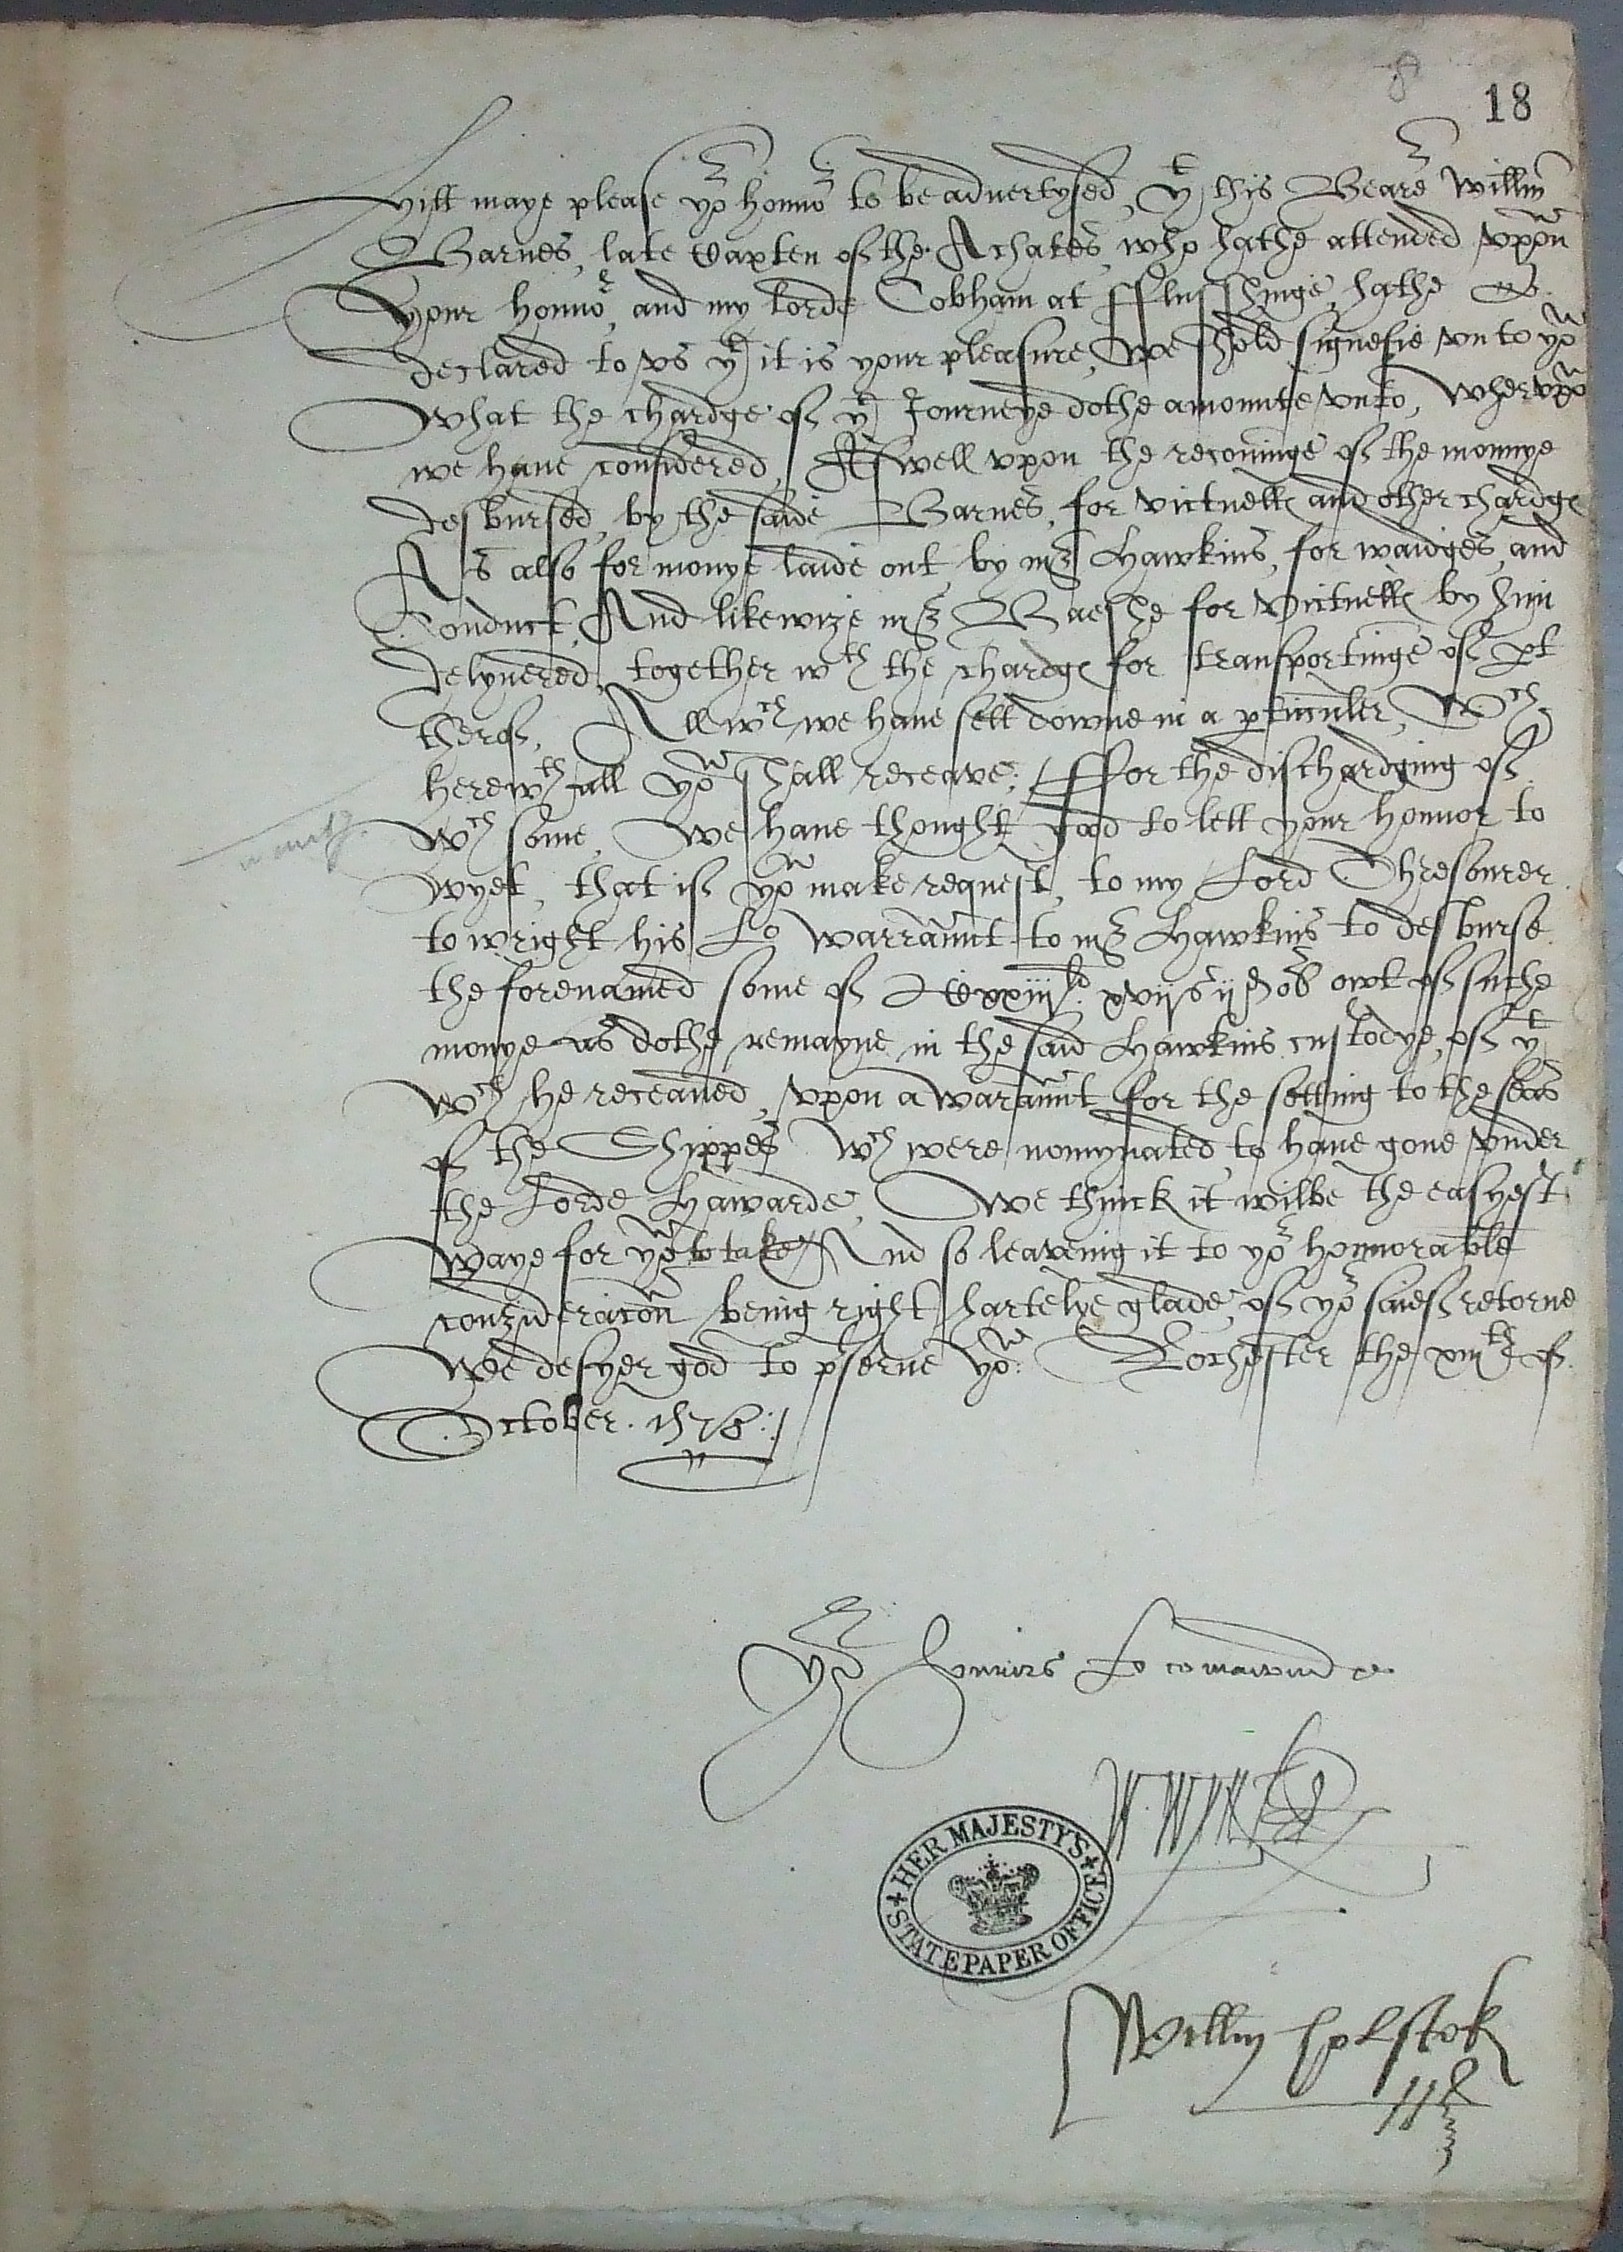 18
Yitt maye please yor honnor to be advertysed, yt this Bearer Willm
Barnes, late Capten of the Achates, who hathe attended uppon
your honnor, and my Lorde Cobham at Flusshinge, hathe
declared to us yt it is your pleasure, we shold signefie unto you
what the chardge of yt Jorneye dothe amounte unto, wherupon
we have considered, Aswell upon the reconinge of the monnye
desbursed, by the saide Barnes, for victuells and other chardges
As also for monye laide out, by mr Hawkins, for waidges, and
Conduct, And likewize mr Baeshe for victuells by him
delyvered, together wth the chardges for transportinge of pt
therof, All wch we have sett downe in a pticuler, Wch
herewthall you shall receave; For the dischardging of
wch some, We have thought good to lett your honnor to
wyet, that if you make request, to my Lord Thresourer
to wright his Lo warraunt to mr Hawkins to desburse
the forenamed some of Cxxiijld xvijs ijd ob owt of suche
monye as dothe remayne in the said Hawkins custodye, of yt
wch he receaved, upon a warraunt for the setting to the seas
of the Shippes wch were nomynated, to have gone under
the Lorde Hawarde, We thinck it wilbe the easyest
waye for you to take, And so leaveing it to yor honnorable
consideracon being right hartelye glade, of yor saief retorne
We desyer god to pserve you: Rochester the xiiith of
October. 1578.
Yor honnors to comaund
W Wynter
Willm holstok
HER MAJESTY'S STATE PAPER OFFICE